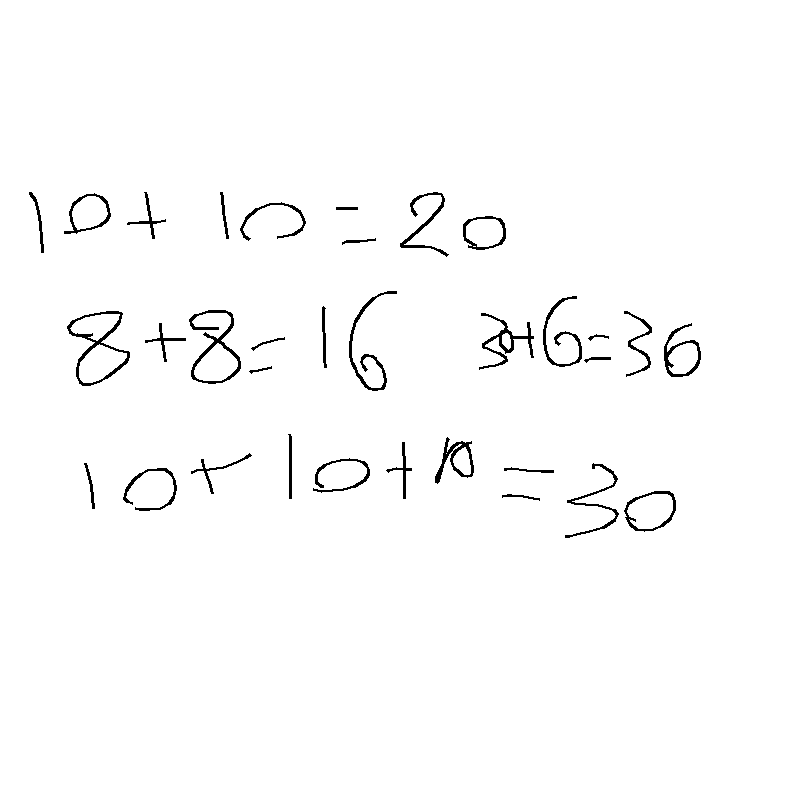 10+ 10 = 20
8+8= 16 30+6=36
10+ 10+10 =30